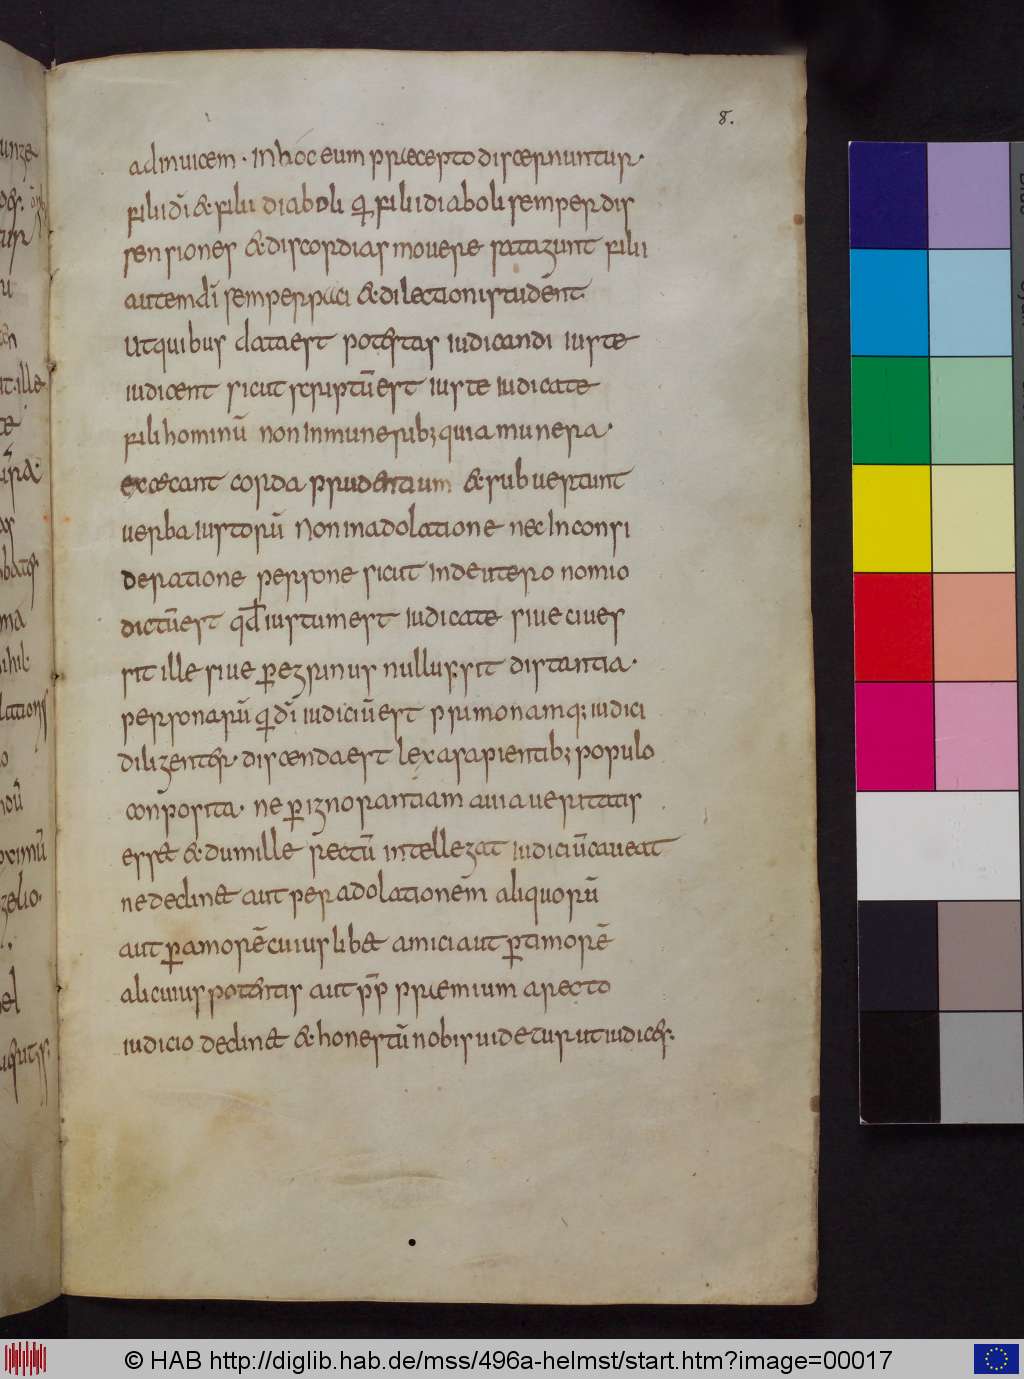 8.
adinuicem · In hoc eum præcepto discernuntur ·
filii dī & filii diaboli q̄ filii diaboli semper dis
sensiones & discordias mouere satagunt filii
autem dī semper paci & dilectioni studēnt
Ut quibus data est potestas iudicandi iuste
iudicent sicut scriptū est iuste iudicate
fili hominū non In munerib; quia munera ·
excęcant corda prudentium & subuertunt
uerba iustorū Non in adolatione nec In consi
deratione persone sicut In deutero nomio
dictū est qd̄ iustum est iudicate siue ciues
sit ille siue peregrinus nullus sit distantia ·
personarū q̄ dī iudiciū est primo namq; iudici
diligenter discenda est lex a sapientib; populo
conposita · ne per ignorantiam a uia ueritatis
ess& & dumille rectū intellegat iudiciū caueat
ne declin& aut per adolationem aliquorū
aut p amorē cuius lib& amici aut p timorē
alicuius potentis aut pp̄ præmium a recto
iudicio declin& & honestū nobis uidetur ut iudices.
© HAB http://diglib.hab.de/mss/496a-helmst/start.htm?image=00017